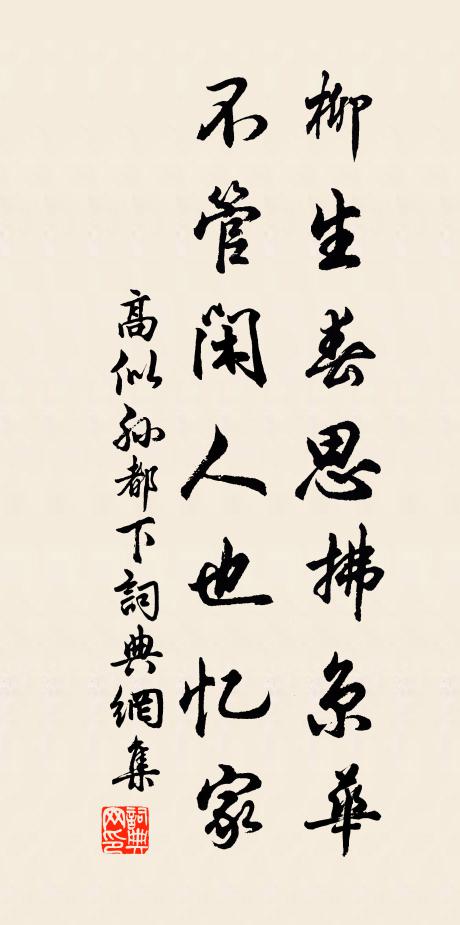 柳生春思拂京華
不管閑人也忆家
高似孫都下詞典網集
詞典網印